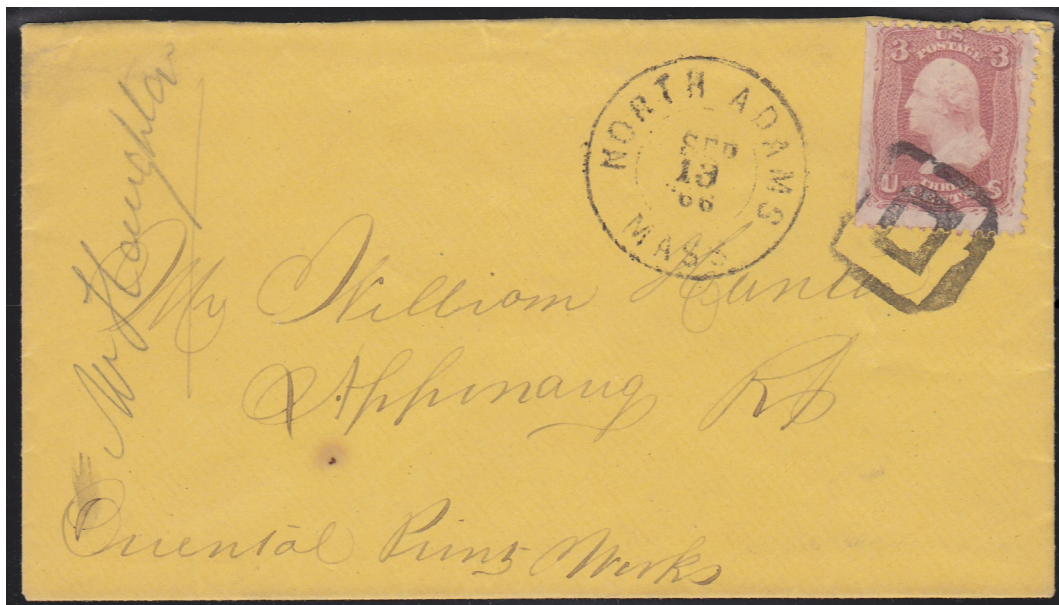 W Houghton
NORTH ADAMS
SEP
13
66
MASS
U.S.
POSTAGE
3 3
U THREE S
CENTS
Mr William
Appinaug RI
Oriental Print Works